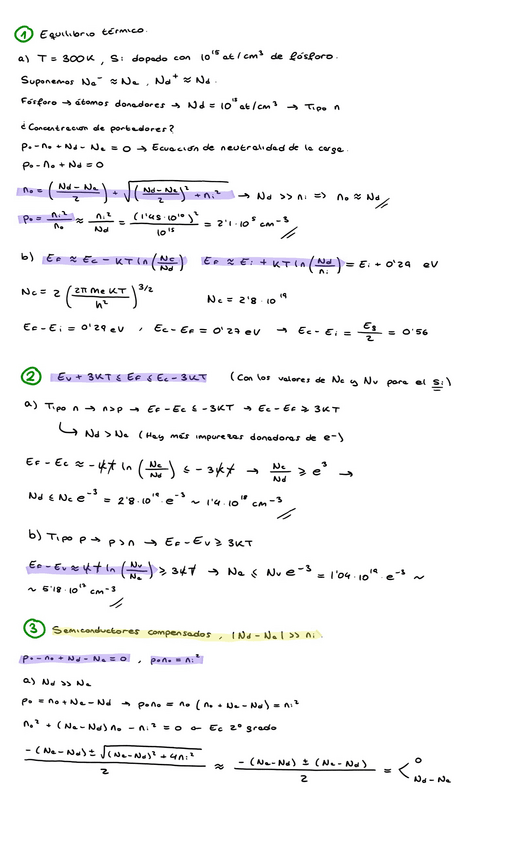 ① Equilibrio térmico.
a) T = 300K, Si dopado con 10^15 at/cm^3 de fósforo.
Suponemos Na^- ≈ Na, Nd^+ ≈ Nd.
Fósforo → átomos donadores → Nd = 10^15 at/cm^3 → Tipo n
¿Concentración de portadores?
p₀ - n₀ + Nd - Na = 0 → Ecuación de neutralidad de la carga.
p₀ - n₀ + Nd = 0
n₀ = ((Nd - Na)/2) + √(((Nd - Na)/2)^2 + ni^2) → Nd >> ni => n₀ ≈ Nd //
p₀ = ni^2/n₀ ≈ ni^2/Nd = (1'45·10^10)^2/10^15 = 2'1·10^5 cm^-3 //
b) EF ≈ Ec - KT ln(Nc/Nd) EF ≈ Ei + KT ln(Nd/ni) = Ei + 0'29 eV
Nc = 2 (2π me KT/h^2)^3/2 Nc = 2'8·10^19
EF - Ei = 0'29 eV , Ec - EF = 0'27 eV → Ec - Ei = Eg/2 = 0'56
② Ev + 3KT ≤ EF ≤ Ec - 3KT (Con los valores de Nc y Nv para el Si)
a) Tipo n → n>p → EF - Ec ≤ -3KT → Ec - EF ≥ 3KT
↳ Nd > Na (Hay más impurezas donadoras de e-)
EF - Ec ≈ -KT ln(Nc/Nd) ≤ -3KT → Nc/Nd ≥ e^3 →
Nd ≤ Nc e^-3 = 2'8·10^19·e^-3 ~ 1'4·10^18 cm^-3 //
b) Tipo p → p>n → EF - Ev ≥ 3KT
EF - Ev ≈ KT ln(Nv/Na) ≥ 3KT → Na ≤ Nv e^-3 = 1'04·10^19·e^-3 ~
~ 5'18·10^17 cm^-3 //
③ Semiconductores compensados, |Nd - Na| >> ni
p₀ - n₀ + Nd - Na = 0 , p₀n₀ = ni^2
a) Nd >> Na
p₀ = n₀ + Na - Nd → p₀n₀ = n₀ (n₀ + Na - Nd) = ni^2
n₀^2 + (Na - Nd) n₀ - ni^2 = 0 ← Ec 2º grado
(-(Na - Nd) ± √((Na - Nd)^2 + 4ni^2))/2 ≈ (-(Na - Nd) ± (Na - Nd))/2 = < 0
Nd - Na